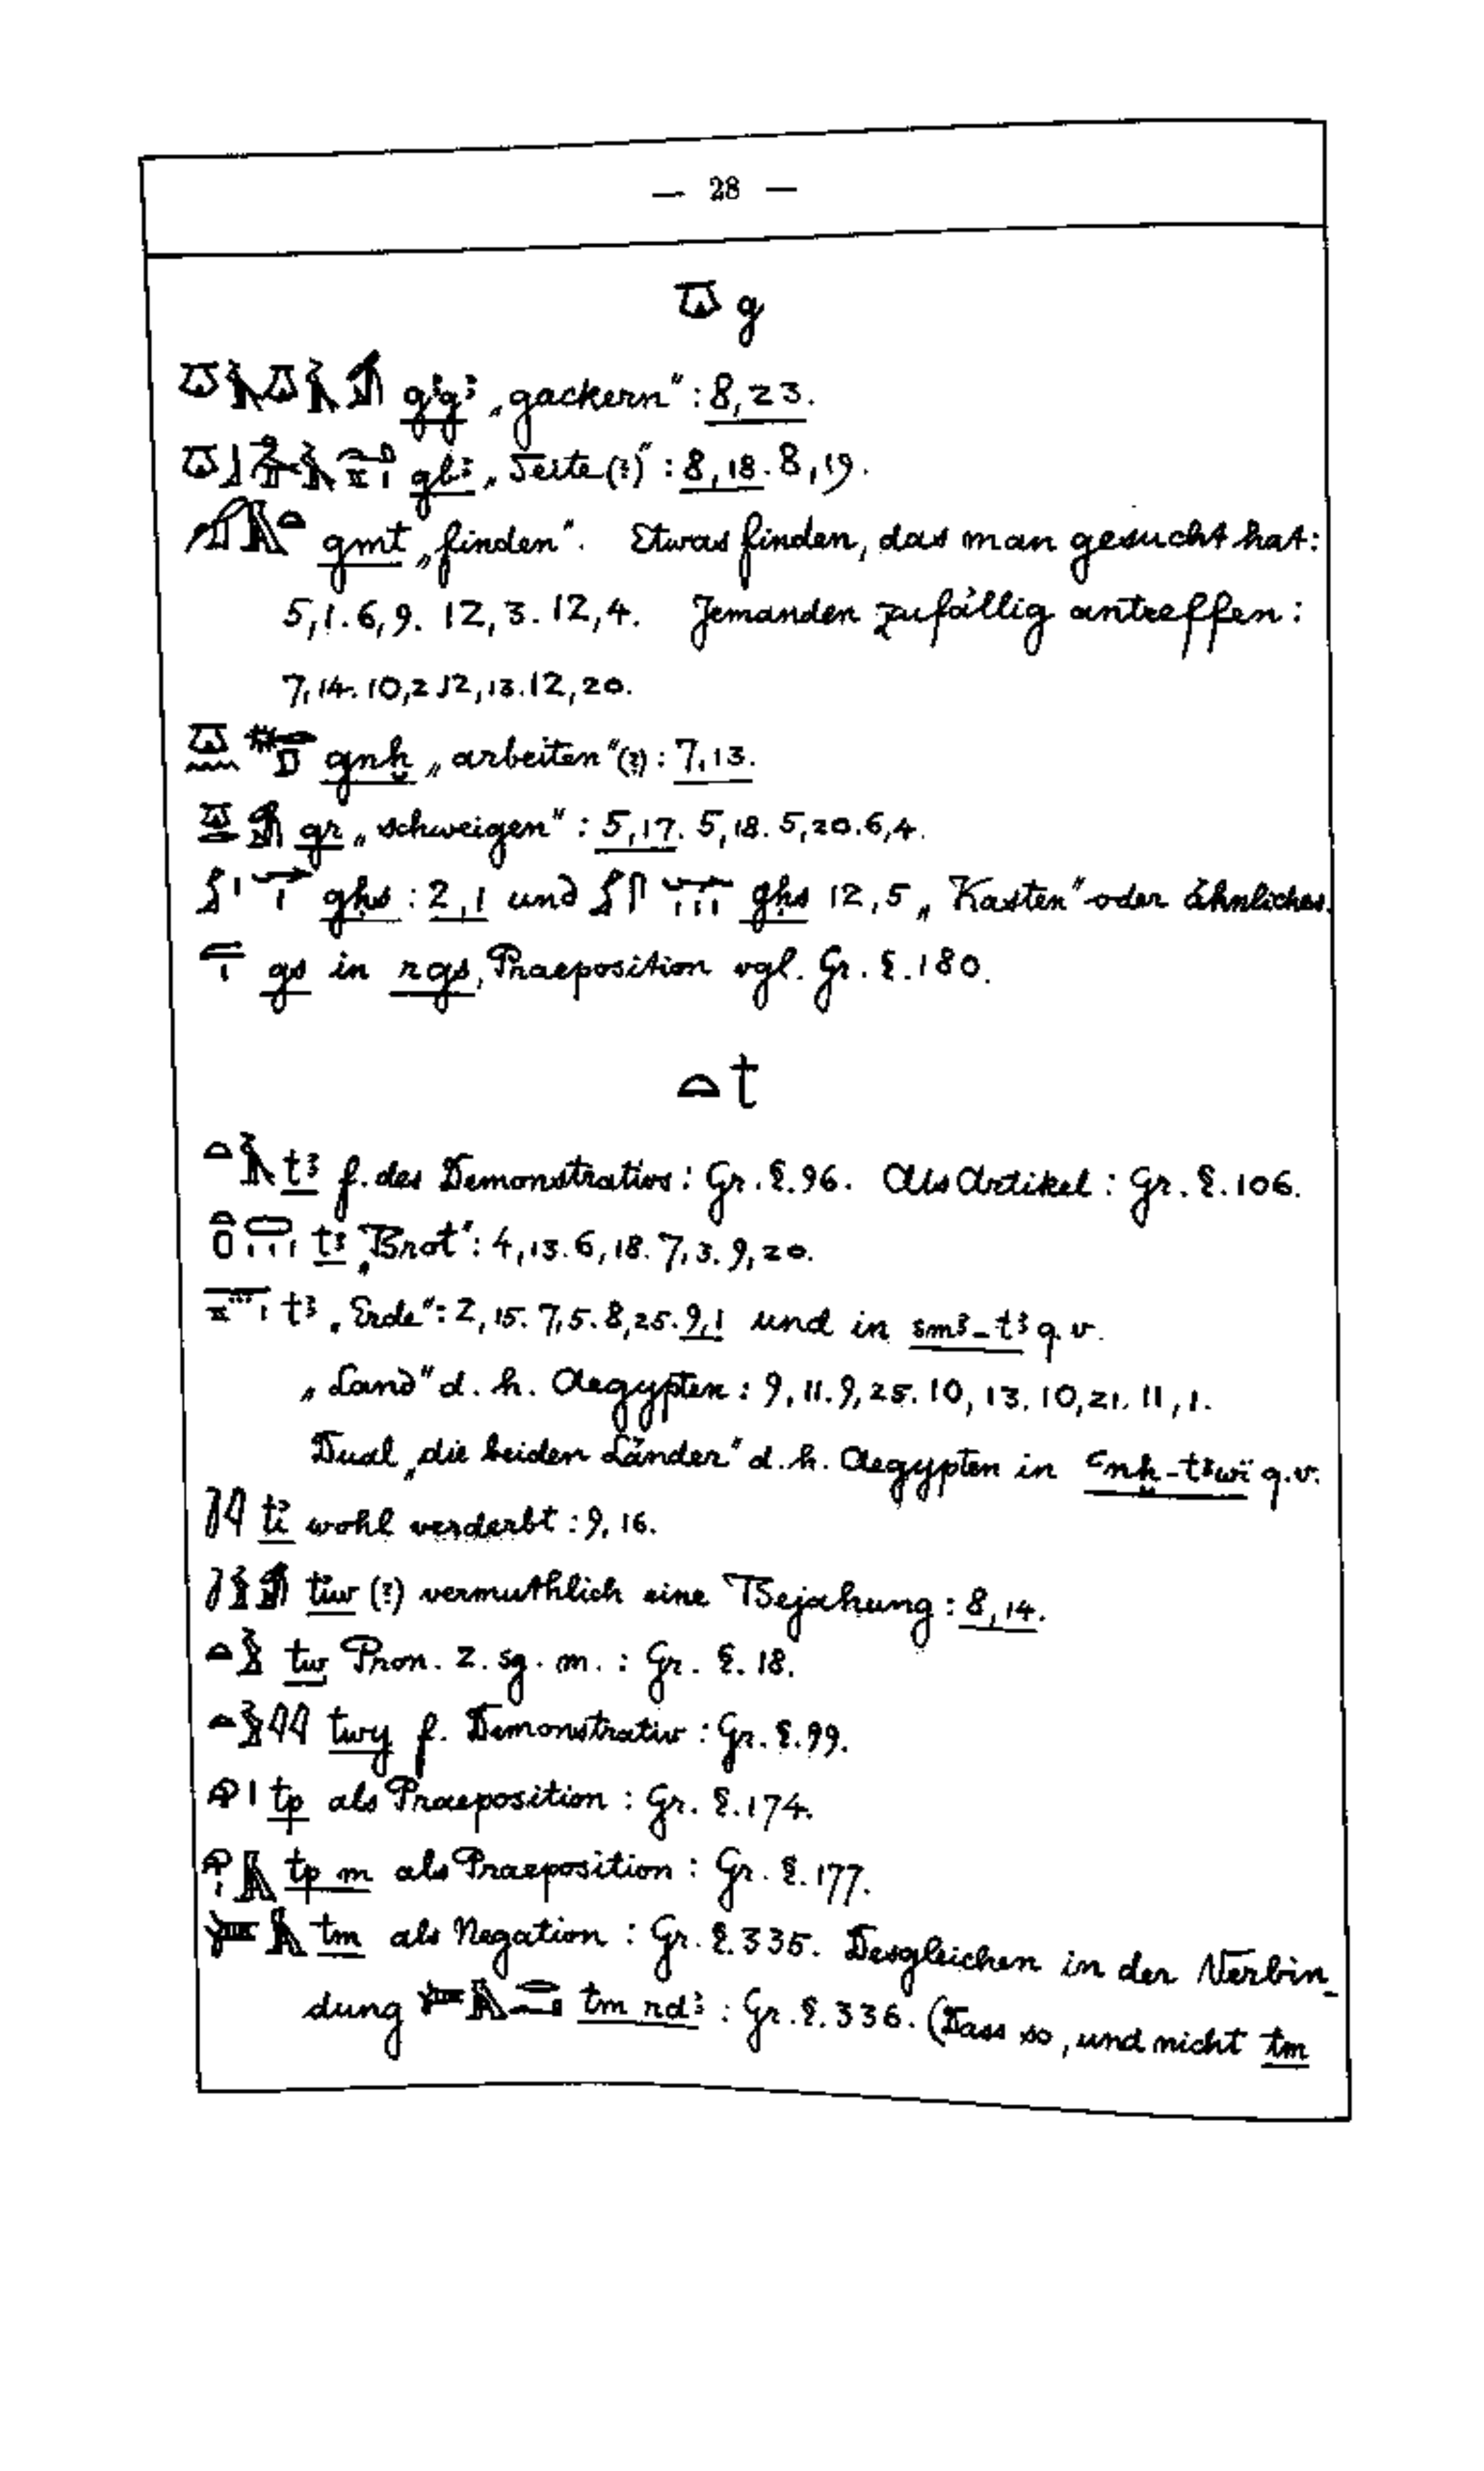 — 28 —
g
gꜣgꜣ „gackern“: 8,23.
gbꜣ „Seite(?)“: 8,18. 8,19.
gmt „finden“. Etwas finden, das man gesucht hat:
5,1. 6,9. 12,3. 12,4. Jemanden zufällig antreffen:
7,14. 10,2 12,13. 12,20.
gnḫ „arbeiten“(?): 7,13.
gr „schweigen“: 5,17. 5,18. 5,20. 6,4.
gḥs : 2,1 und gḥs 12,5 „Kasten“ oder ähnliches.
gs in rgs, Praeposition vgl. Gr. §. 180.
t
tꜣ f. des Demonstrativs: Gr. §. 96. Als Artikel: Gr. §. 106.
tꜣ „Brot“: 4,13. 6,18. 7,3. 9,20.
tꜣ „Erde“: 2,15. 7,5. 8,25. 9,1 und in smꜣ-tꜣ q.v.
„Land“ d. h. Aegypten: 9,11. 9,25. 10,13. 10,21. 11,1.
Dual „die beiden Länder“ d. h. Aegypten in ꜥnḫ-tꜣwï q.v.
tï wohl verderbt: 9,16.
tïw (?) vermuthlich eine Bejahung: 8,14.
tw Pron. 2. sg. m.: Gr. §. 18.
twy f. Demonstrativ: Gr. §. 99.
tp als Praeposition: Gr. §. 174.
tp m als Praeposition: Gr. §. 177.
tm als Negation: Gr. §. 335. Desgleichen in der Verbin-
dung tm rdꜣ: Gr. §. 336. (Dass so, und nicht tm